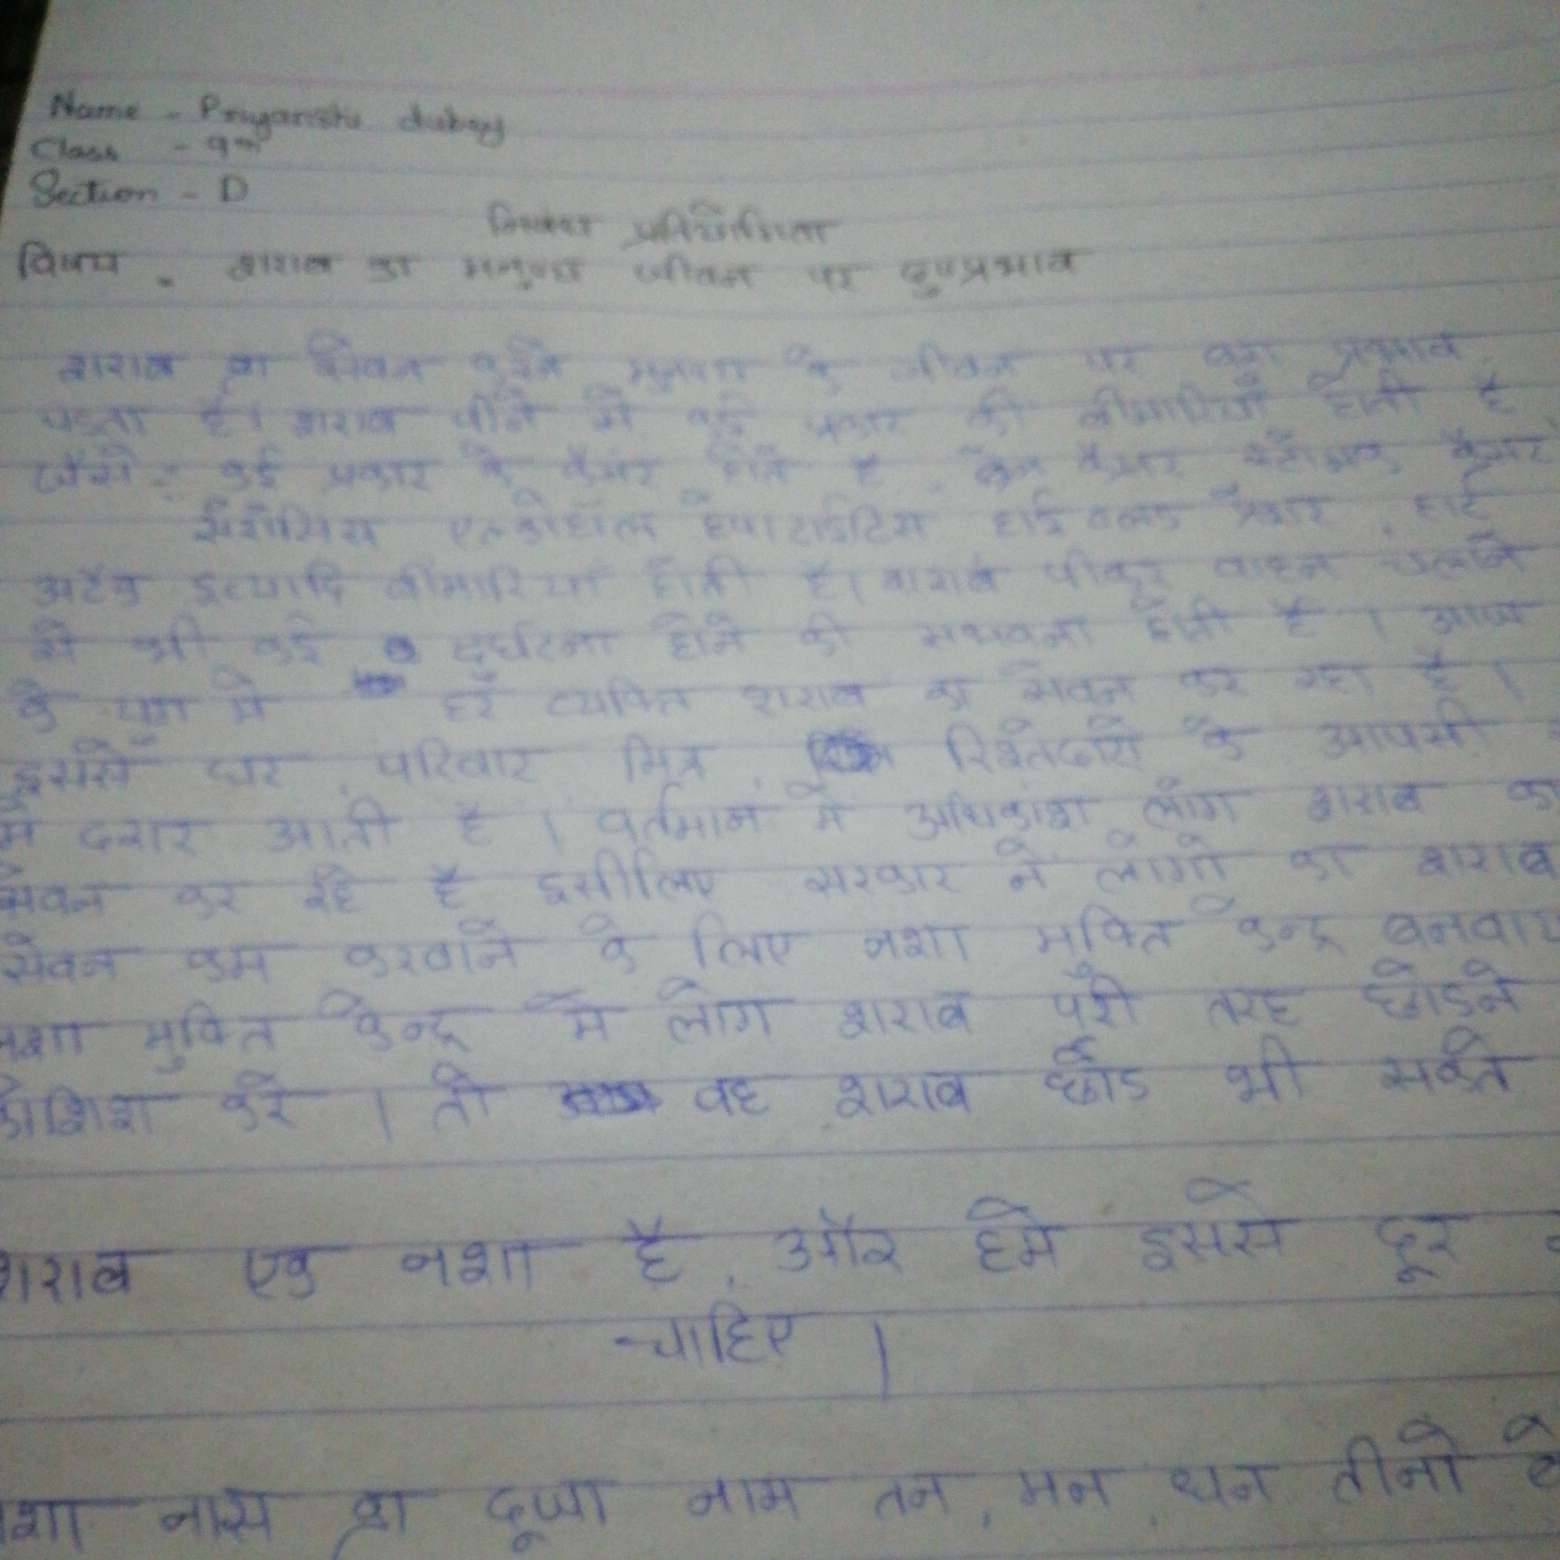 Name - Priyanshi dubey
Class - 9th
Section - D
निबंध प्रतियोगिता
विषय - शराब का मनुष्य जीवन पर दुष्प्रभाव
शराब का सेवन करने के जीवन पर प्रभाव
पड़ता है। शराब पीने से कई प्रकार की बीमारियाँ होती है
जैसे :- कई प्रकार के कैंसर होते है कैंसर
एल्कोहॉल हेपाटाईटिस हाई ब्लड प्रेशर, हार्ट
अटैक इत्यादि बीमारियाँ होती है। शराब पीकर वाहन चलाने
से भी कई दुर्घटना होने की होती है। आज
के युग मे हर व्यक्ति शराब का सेवन कर रहा है।
इससे घर, परिवार मित्र, के आपसी
मे दरार आती है। वर्तमान मे अधिकांश लोग शराब का
सेवन कर रहे है इसीलिए सरकार ने लोगो का शराब
सेवन कम करवाने के लिए नशा मुक्ति केन्द्र
नशा मुक्ति केन्द्र मे लोग शराब तरह छोडने
कोशिश करे। तो वह शराब छोड भी सकते
शराब एक नशा है, और हमे इससे दूर
चाहिए।
नशा नाश का दूजा नाम तन, मन, धन तीनो